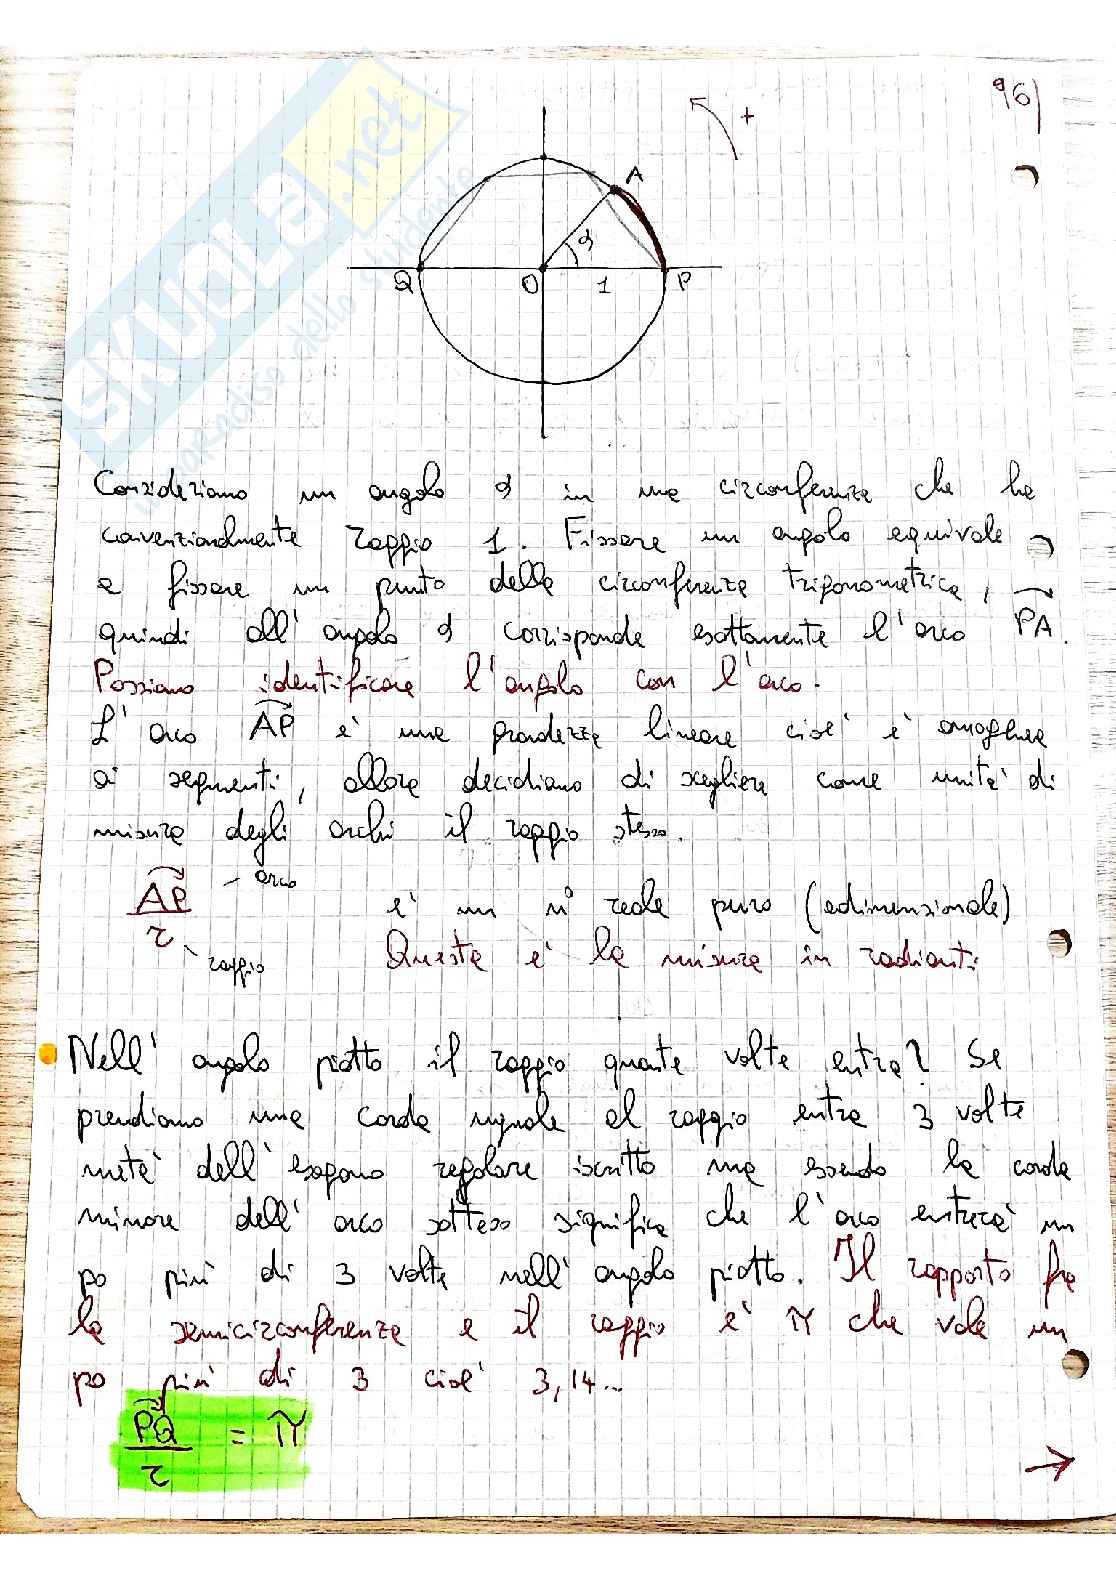 96)
+
A
α
Q
O
1
P
SKUOLA.net
Consideriamo un angolo α in una circonferenza che ha
convenzionalmente raggio 1. Fissare un angolo equivale
a fissare un punto della circonferenza trigonometrica,
quindi all'angolo α corrisponde esattamente l'arco PA.
Possiamo identificare l'angolo con l'arco.
L'arco AP è una grandezza lineare cioè è omogenea
ai segmenti, allora decidiamo di scegliere come unità di
misura degli archi il raggio stesso.
AP - arco
r raggio
è un n° reale puro (adimensionale)
Questa è la misura in radianti
Nell'angolo piatto il raggio quante volte entra? Se
prendiamo una corda uguale al raggio entra 3 volte
metà dell'esagono regolare iscritto ma essendo la corda
minore dell'arco sotteso significa che l'arco entrerà un
po più di 3 volte nell'angolo piatto. Il rapporto fra
la semicirconferenza e il raggio è π che vale un
po più di 3 cioè 3,14...
PQ
r
= π
→